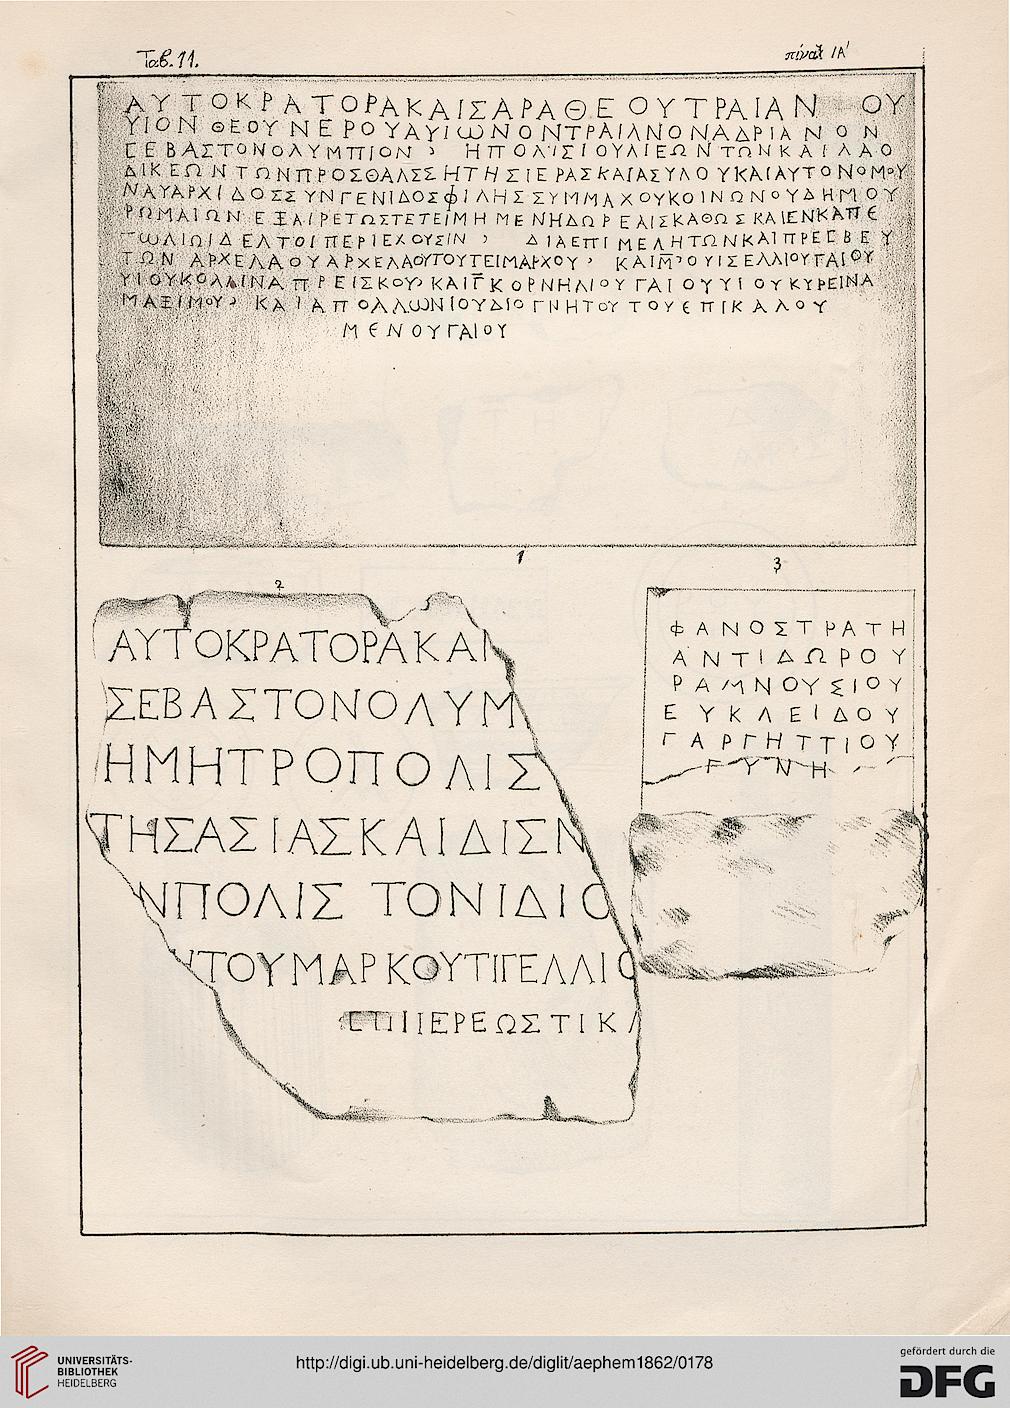 Ταβ. 11.
πίναξ ΙΑ'
ΑΥΤΟΚΡΑΤΟΡΑΚΑΙΣΑΡΑΘΕΟΥΤΡΑΙΑΝ ΟΥ
ΥΙΟΝΘΕΟΥΝΕΡΟΥΑΥΙΩΝΟΝΤΡΑΙΛΝΟΝΑΔΡΙΑΝΟΝ
ΣΕΒΑΣΤΟΝΟΛΥΜΠΙΟΝ, ΗΠΟΛΙΣΙΟΥΛΙΕΩΝΤΩΝΚΑΙΛΑΟ
ΔΙΚΕΩΝΤΩΝΠΡΟΣΘΑΛΣΣΗΤΗΣΙΕΡΑΣΚΑΙΑΣΥΛΟΥΚΑΙΑΥΤΟΝΟΜΟΥ
ΝΑΥΑΡΧΙΔΟΣΣΥΝΓΕΝΙΔΟΣΦΙΛΗΣΣΥΜΜΑΧΟΥΚΟΙΝΩΝΟΥΔΗΜΟΥ
ΡΩΜΑΙΩΝΕΞΑΙΡΕΤΩΣΤΕΤΕΙΜΗΜΕΝΗΔΩΡΕΑΙΣΚΑΘΩΣΚΑΙΕΝΚΑΠΕ
ΤΩΛΙΩΙΔΕΛΤΟΙΠΕΡΙΕΧΟΥΣΙΝ, ΔΙΑΕΠΙΜΕΛΗΤΩΝΚΑΙΠΡΕΣΒΕΥ
ΤΩΝΑΡΧΕΛΑΟΥΑΡΧΕΛΑΟΥΤΟΥΤΕΙΜΑΡΧΟΥ, ΚΑΙΜ̅,ΟΥΙΣΕΛΛΙΟΥΓΑΙΟΥ
ΥΙΟΥΚΟΛΛΙΝΑΠΡΕΙΣΚΟΥ,ΚΑΙΓ̅ΚΟΡΝΗΛΙΟΥΓΑΙΟΥΥΙΟΥΚΥΡΕΙΝΑ
ΜΑΞΙΜΟΥ, ΚΑΙΑΠΟΛΛΩΝΙΟΥΔΙΟΓΝΗΤΟΥΤΟΥΕΠΙΚΑΛΟΥ
ΜΕΝΟΥΓΑΙΟΥ
1
2
ΑΥΤΟΚΡΑΤΟΡΑΚΑΙ
ΣΕΒΑΣΤΟΝΟΛΥΜ
ΗΜΗΤΡΟΠΟΛΙΣ
ΤΗΣΑΣΙΑΣΚΑΙΔΙΣΝ
ΝΠΟΛΙΣ ΤΟΝΙΔΙΟ
ΝΤΟΥΜΑΡΚΟΥΤΙΓΕΛΛΙΟ
ΕΠΙΙΕΡΕΩΣΤΙΚΛ
3
ΦΑΝΟΣΤΡΑΤΗ
ΑΝΤΙΔΩΡΟΥ
ΡΑΜΝΟΥΣΙΟΥ
ΕΥΚΛΕΙΔΟΥ
ΓΑΡΓΗΤΤΙΟΥ
ΓΥΝΗ
UNIVERSITÄTS-
BIBLIOTHEK
HEIDELBERG
http://digi.ub.uni-heidelberg.de/diglit/aephem1862/0178
gefördert durch die
DFG